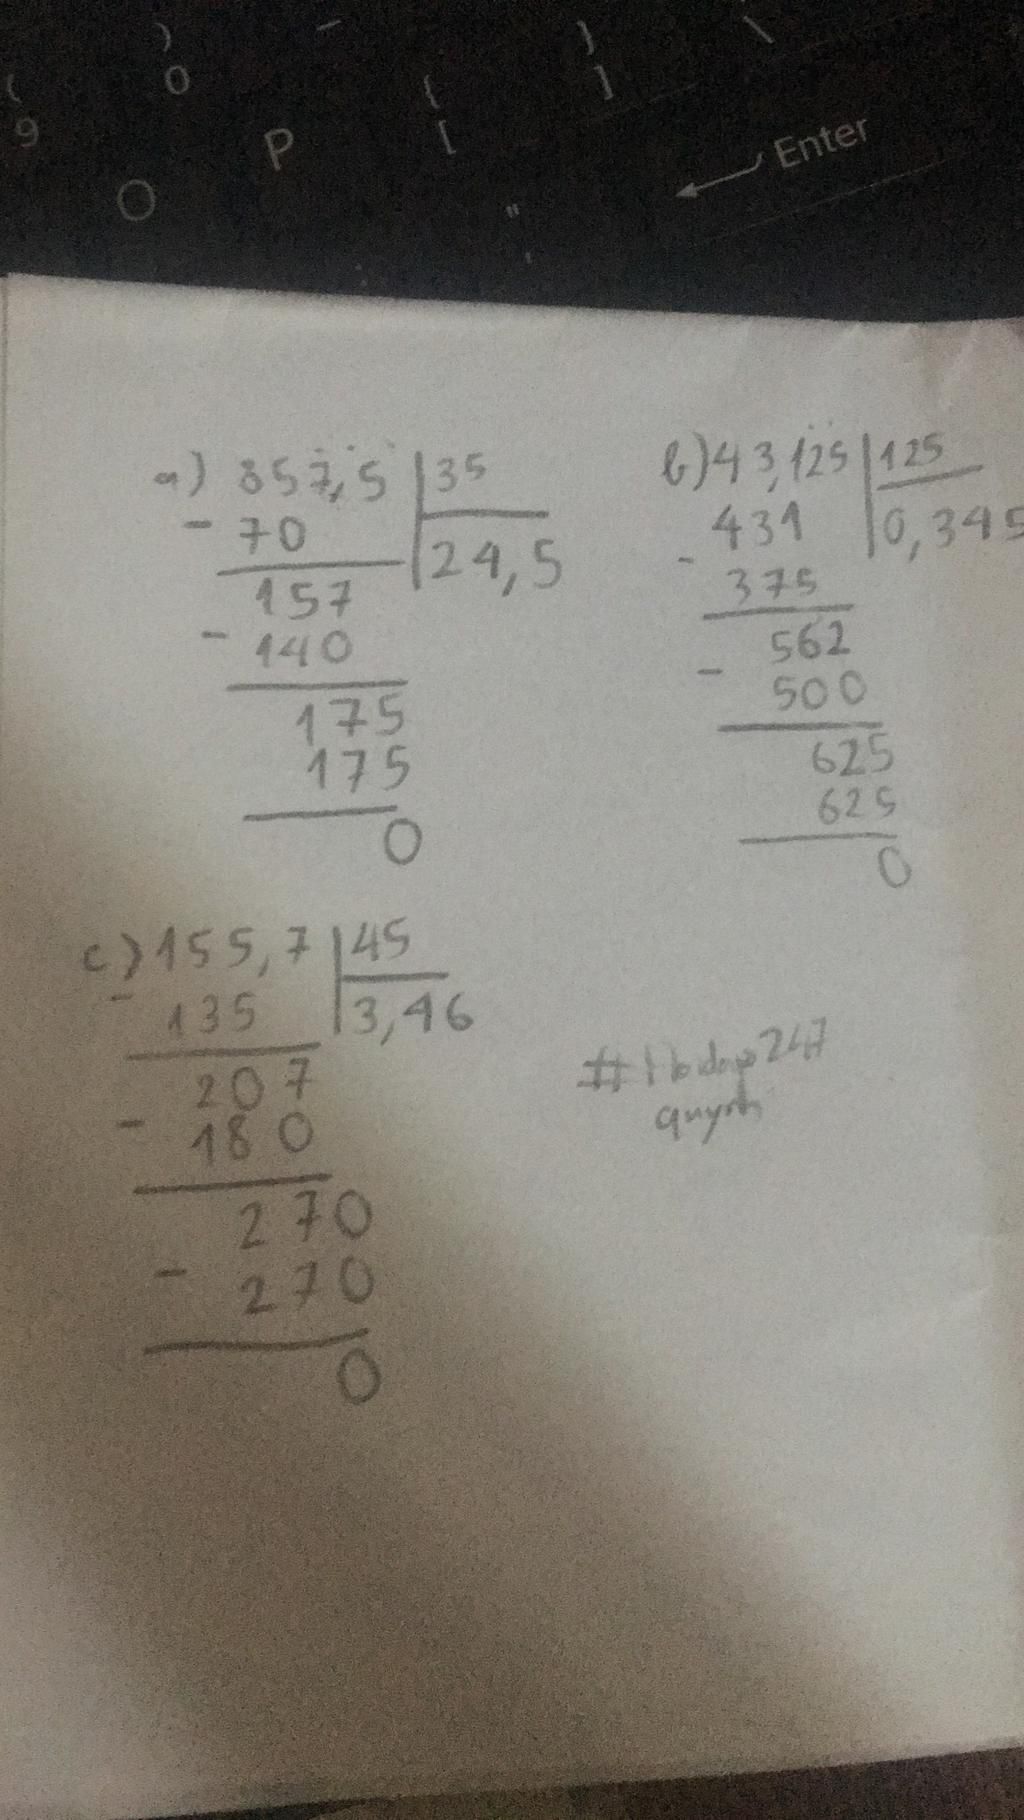 ( ) _ } \
9 0 { ]
O P [ ← Enter
"
'
a) 857,5 | 35
- 70 | 24,5
157
- 140
175
175
0
b) 43,125 | 125
431 | 0,345
- 375
562
- 500
625
625
0
c) 155,7 | 45
- 135 | 3,46
207
- 180
270
- 270
0
quynh